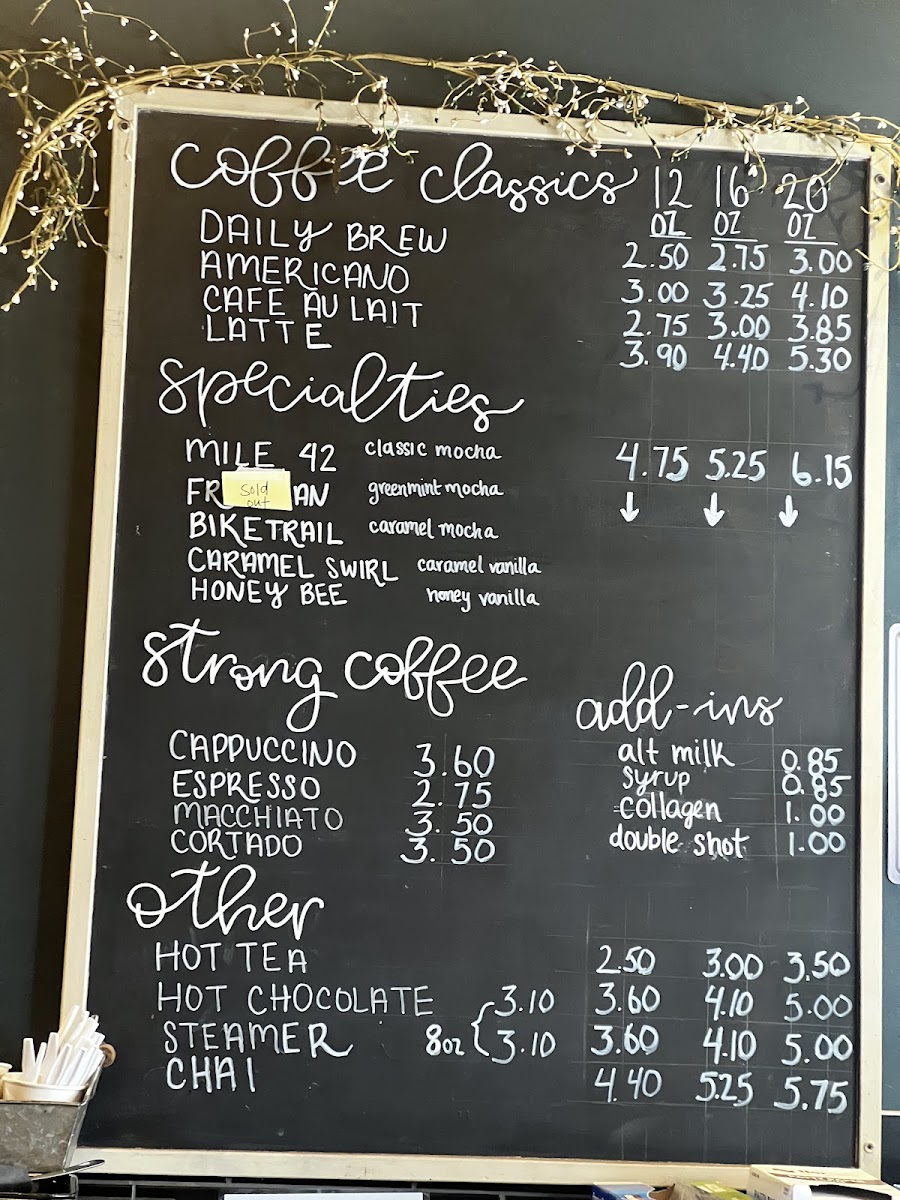 coffee classics 12 oz 16 oz 20 oz
DAILY BREW 2.50 2.75 3.00
AMERICANO 3.00 3.25 4.10
CAFE AU LAIT 2.75 3.00 3.85
LATTE 3.90 4.40 5.30
specialties
MILE 42 classic mocha 4.75 5.25 6.15
FR sold out AN greenmint mocha ↓ ↓ ↓
BIKETRAIL caramel mocha
CARAMEL SWIRL caramel vanilla
HONEY BEE honey vanilla
strong coffee
CAPPUCCINO 3.60
ESPRESSO 2.75
MACCHIATO 3.50
CORTADO 3.50
add-ins
alt milk 0.85
syrup 0.85
collagen 1.00
double shot 1.00
other
HOT TEA 2.50 3.00 3.50
HOT CHOCOLATE 8oz { 3.10 3.60 4.10 5.00
STEAMER 3.10 3.60 4.10 5.00
CHAI 4.40 5.25 5.75